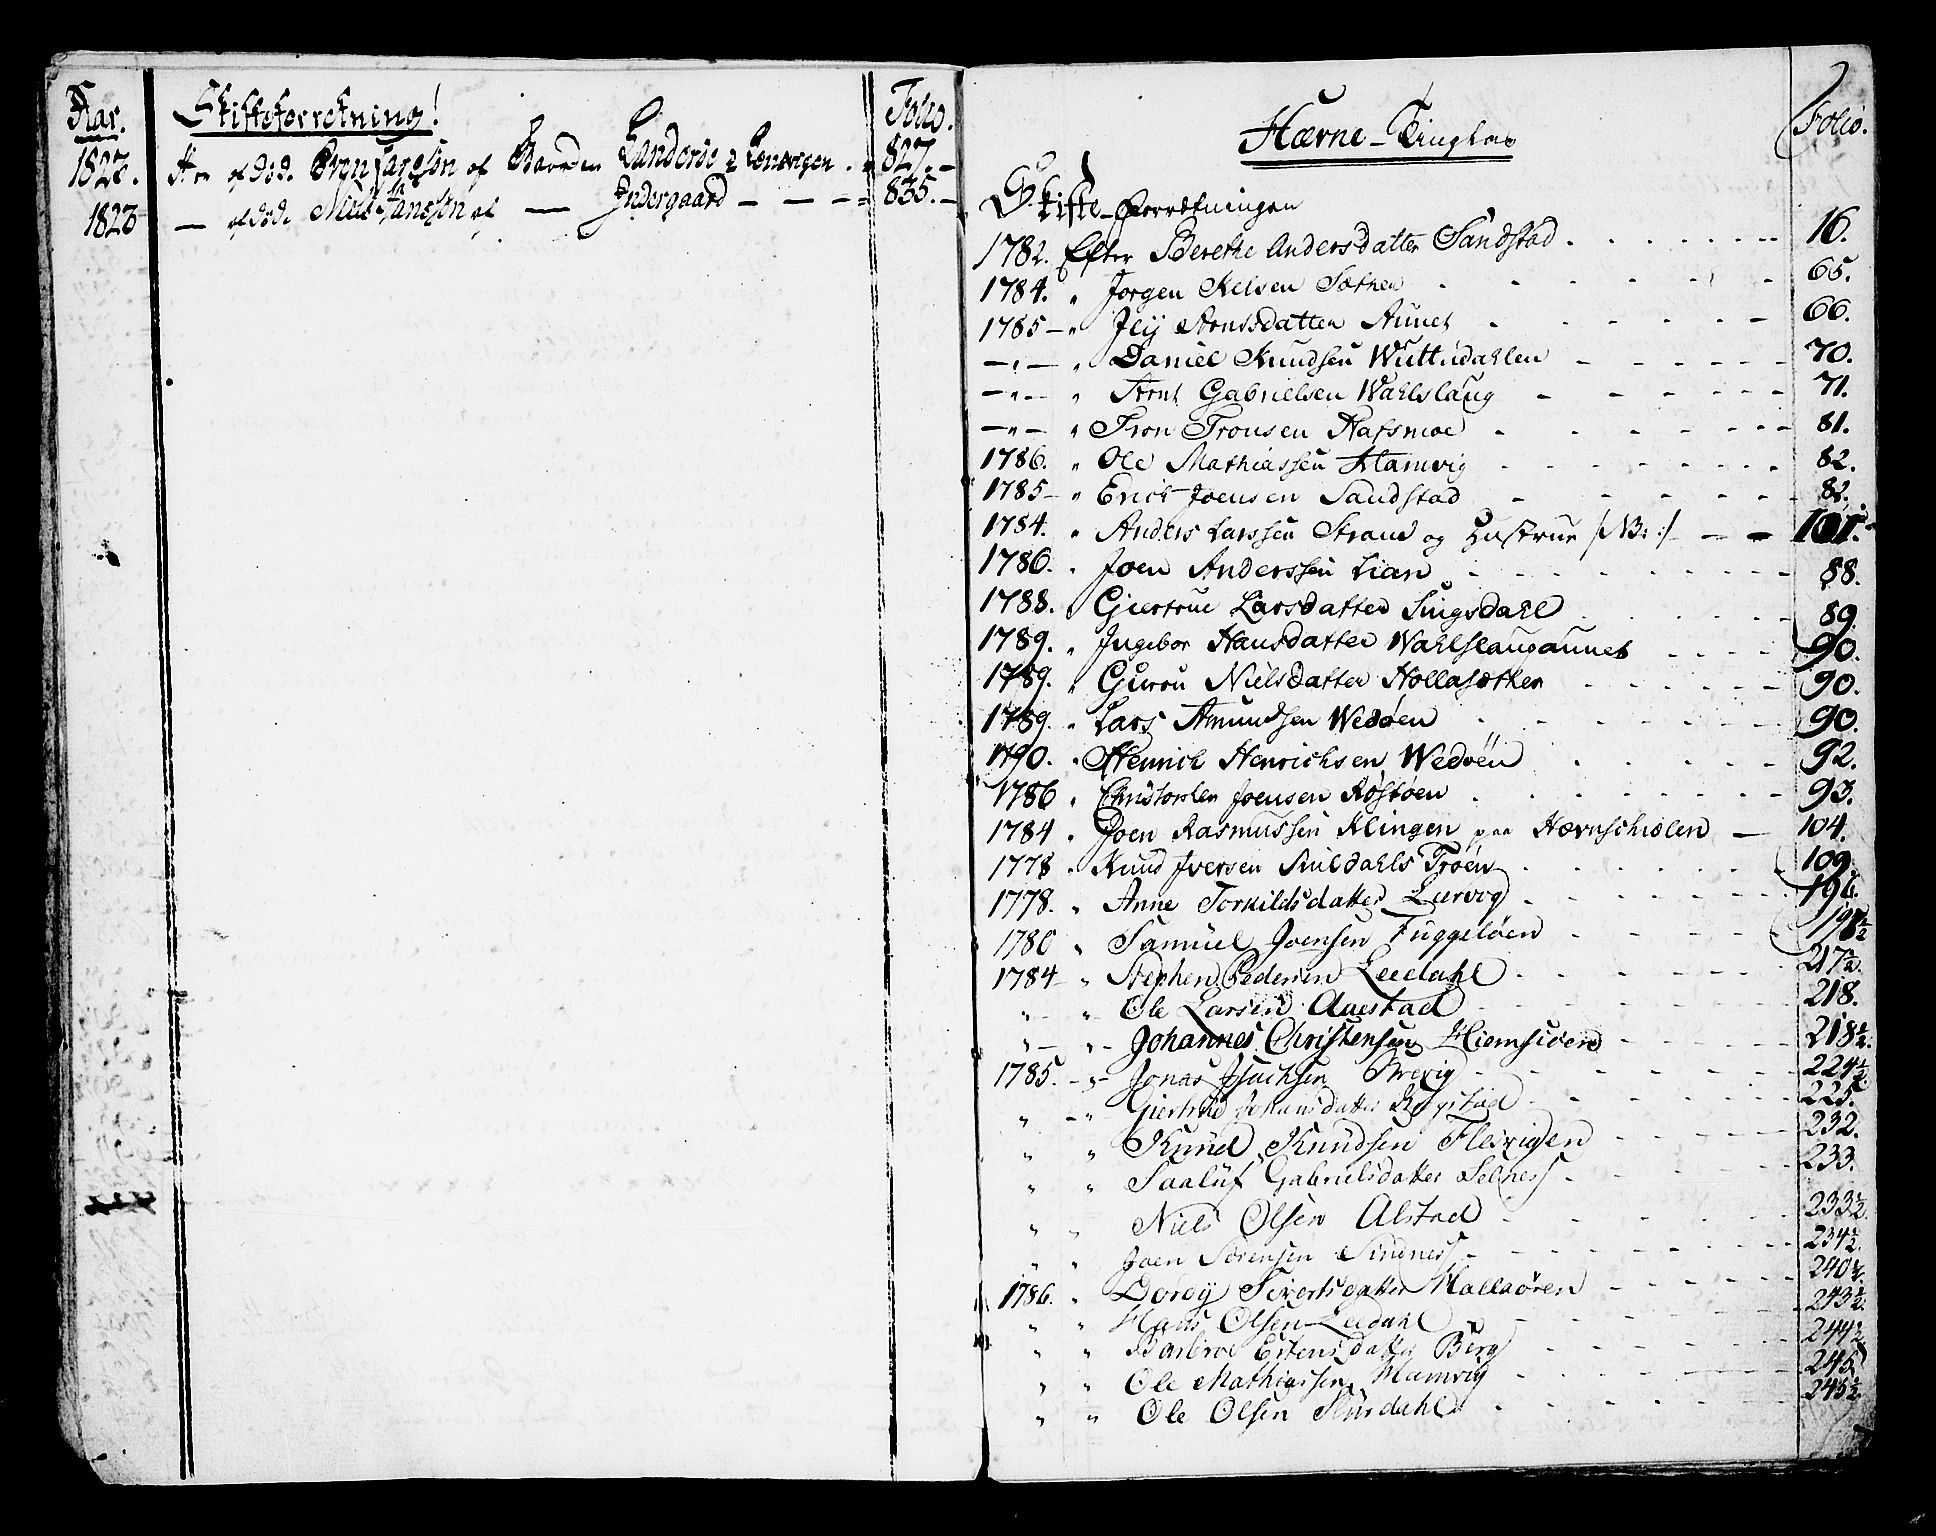 Aar. Skifteforretning! Folio.
1827. af død. af 827.
1823 — af døde Niels Jansson af — Indergaard — — — 835.
Hærne-Tinglav Folio.
Skifte-Forretningen
1782. Efter Berethe Andersdatter Sandstad . . . . . . . 16.
1784. " Jørgen Nelsen Sæther - - - - - 65.
1785 - " Arntsdatter Aunet - - - - - 66.
- " - " Daniel Knudsen Wuttudahlen - - - - - 70.
- " - " Arnt Gabrielsen Wahlslaug - - - - - 71.
- " - " Tron Tronsen Hafsmoe - - - - - 81.
1786. " Ole Mathiassen Hamvig - - - - - 82.
1785 - " Erich Joensen Sandstad - - - - - 82.
1784. " Anders Larssen Strand og Hustrue /:NB::/ - - - 101.
1786. " Joen Anderssen Lian - - - - - 88.
1788. " Giertrue Larsdatter Singsdahl - - - - - 89.
1789. " Ingebor Hansdatter Wahlslaugaunet - - - - 90.
1789. " Guru Nielsdatter Hollasæther - - - - - 90.
1789. " Lars Amundsen Wedøen - - - - - 90.
1790. " Henrich Henrichsen Wedøen - - - - - 92.
1786 " Christopher Joensen Røstøen - - - - - 93.
1784 " Joen Rasmussen Klingen paa Hærnschiølen — 104.
1778 " Knud Iversen Snildahls Trøen - - - - - 109.
1778. " Anne Torkildsdatter Lervog - - - - - 196.
1780 " Samuel Joensen Fuggeløen - - - - - 197½
1784 - " Stephen Pedersen Leedahl - - - - - 217½.
" - " Ole Larsen Auestad - - - - - 218.
" - " - Johannes Christensen Hiemsiøen - - - - 218½.
1785. - " - Jonas Isachsen Brevig - - - - - 224½.
" - " Giertrue Johansdatter Rogstad - - - - - 225.
" " Knud Knudsen Flesvigen - - - - - 232.
" " Gabrielsdatter Selness - - - - - 233.
" " Niels Olsen Alstad - - - - - 233½.
" " Joen Sørensen Sinness - - - - - 234½.
1786. " Dordy Sivertsdatter Hallaøren - - - - - 240½.
" " Hans Olsen Leedahl - - - - - 243½.
" " Barbroe Estensdatter Berg - - - - - 244½.
" " Ole Mathiassen Hamvig - - - - - 245.
" " Ole Olsen Snildahl - - - - - 245½.